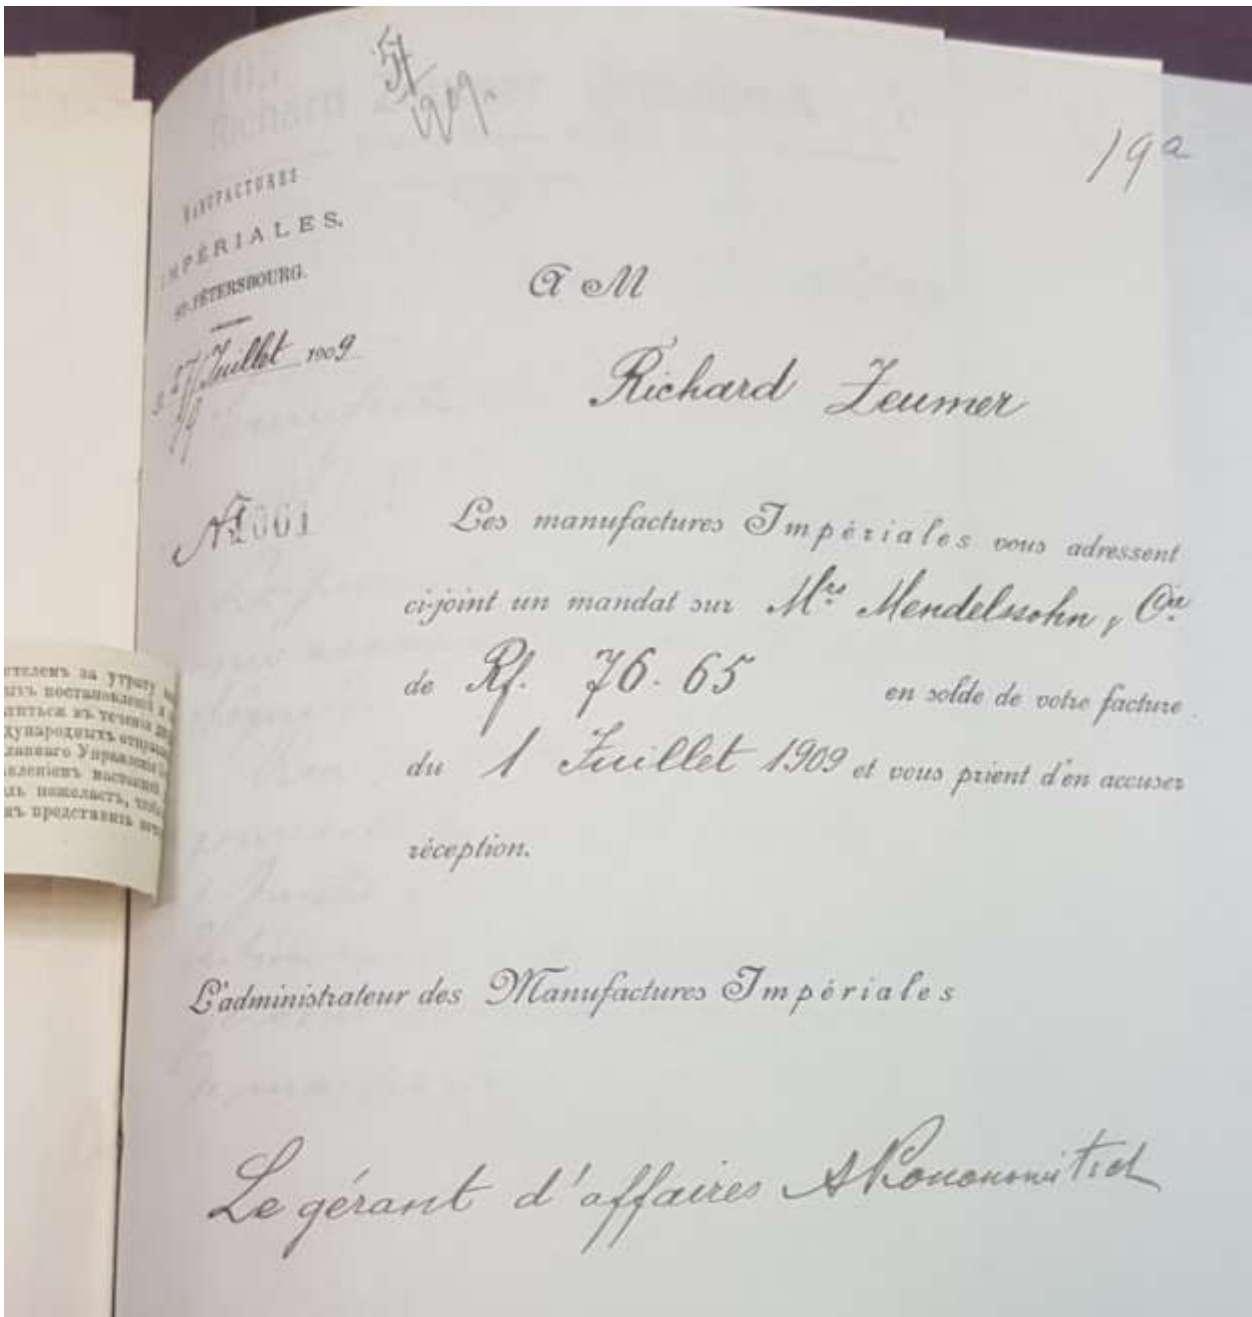 51/1909.
19a
MANUFACTURES
IMPÉRIALES,
ST-PÉTERSBOURG.
27 Juillet 1909
A M
Richard Zeumer
№ 1061
Les manufactures Impériales vous adressent
ci-joint un mandat sur Mrs Mendelssohn, Cie
de Rf. 76.65 en solde de votre facture
du 1 Juillet 1909 et vous prient d'en accuser
réception.
L'administrateur des Manufactures Impériales
Le gérant d'affaires
за утрату
постановленій
въ теченіи
Управленія
пожелаетъ,
представить